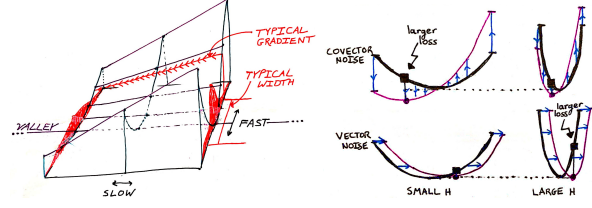 TYPICAL
GRADIENT
TYPICAL
WIDTH
VALLEY
FAST
SLOW
COVECTOR
NOISE
larger
loss
VECTOR
NOISE
larger
loss
SMALL H
LARGE H